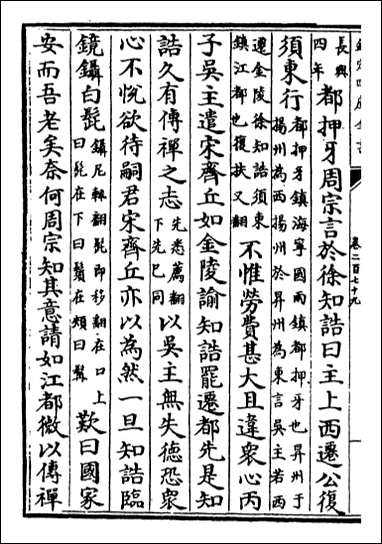 欽定四庫全書
卷二百七十九
長興
四年
都押牙周宗言於徐知誥曰主上西遷公復
須東行
都押牙鎮海寧國兩鎮都押牙也昇州于
揚州為西揚州於昇州為東言吳主若西
遷金陵徐知誥須東
鎮江都也復扶又翻
不惟勞費甚大且違衆心丙
子吳主遣宋齊丘如金陵諭知誥罷遷都先是知
誥久有傳禪之志
先悉薦翻
下先已同
以吳主無失徳恐衆
心不悅欲待嗣君宋齊丘亦以為然一旦知誥臨
鏡鑷白髭
鑷尼輒翻髭即移翻在口上
曰髭在下曰鬚在頰曰髯
歎曰國家
安而吾老矣奈何周宗知其意請如江都微以傳禪